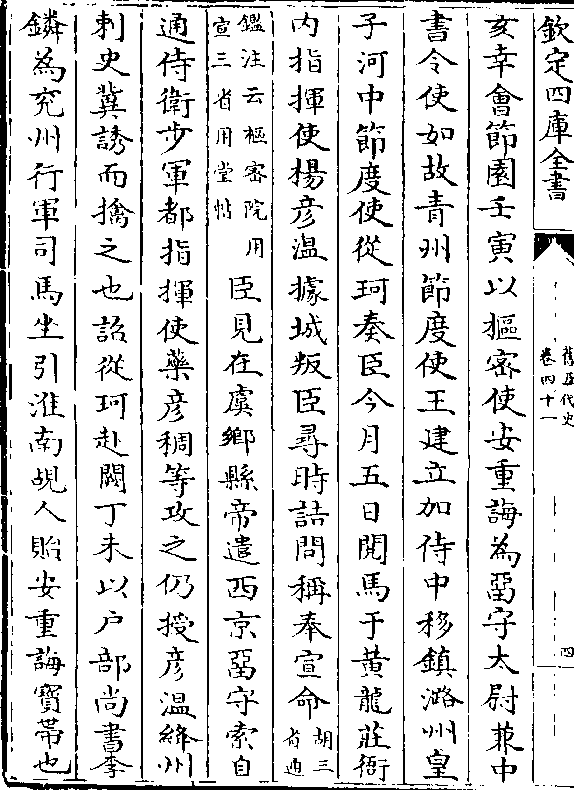 欽定四庫全書
舊五代史
卷四十一
四
亥幸會節園壬寅以樞密使安重誨為留守太尉兼中
書令使如故青州節度使王建立加侍中移鎮潞州皇
子河中節度使從珂奏臣今月五日閱馬于黃龍莊衙
内指揮使楊彦溫據城叛臣尋時詰問稱奉宣命胡三省通
鑑注云樞密院用宣三省用堂帖臣見在虞鄉縣帝遣西京留守索自
通侍衛步軍都指揮使藥彦稠等攻之仍授彦溫絳州
刺史冀誘而擒之也詔從珂赴闕丁未以户部尚書李
鏻為兖州行軍司馬坐引淮南覘人貽安重誨寳帶也